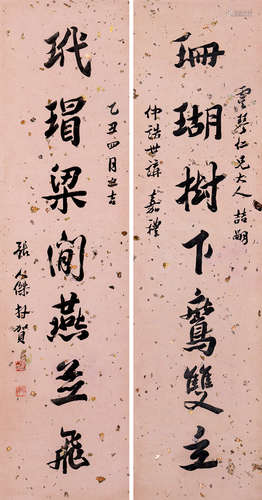 珊瑚樹下鸞雙立
霞琴仁兄大人喆嗣
仲詵世講嘉禮
玳瑁梁間燕並飛
乙丑四月之吉
張人傑拜賀